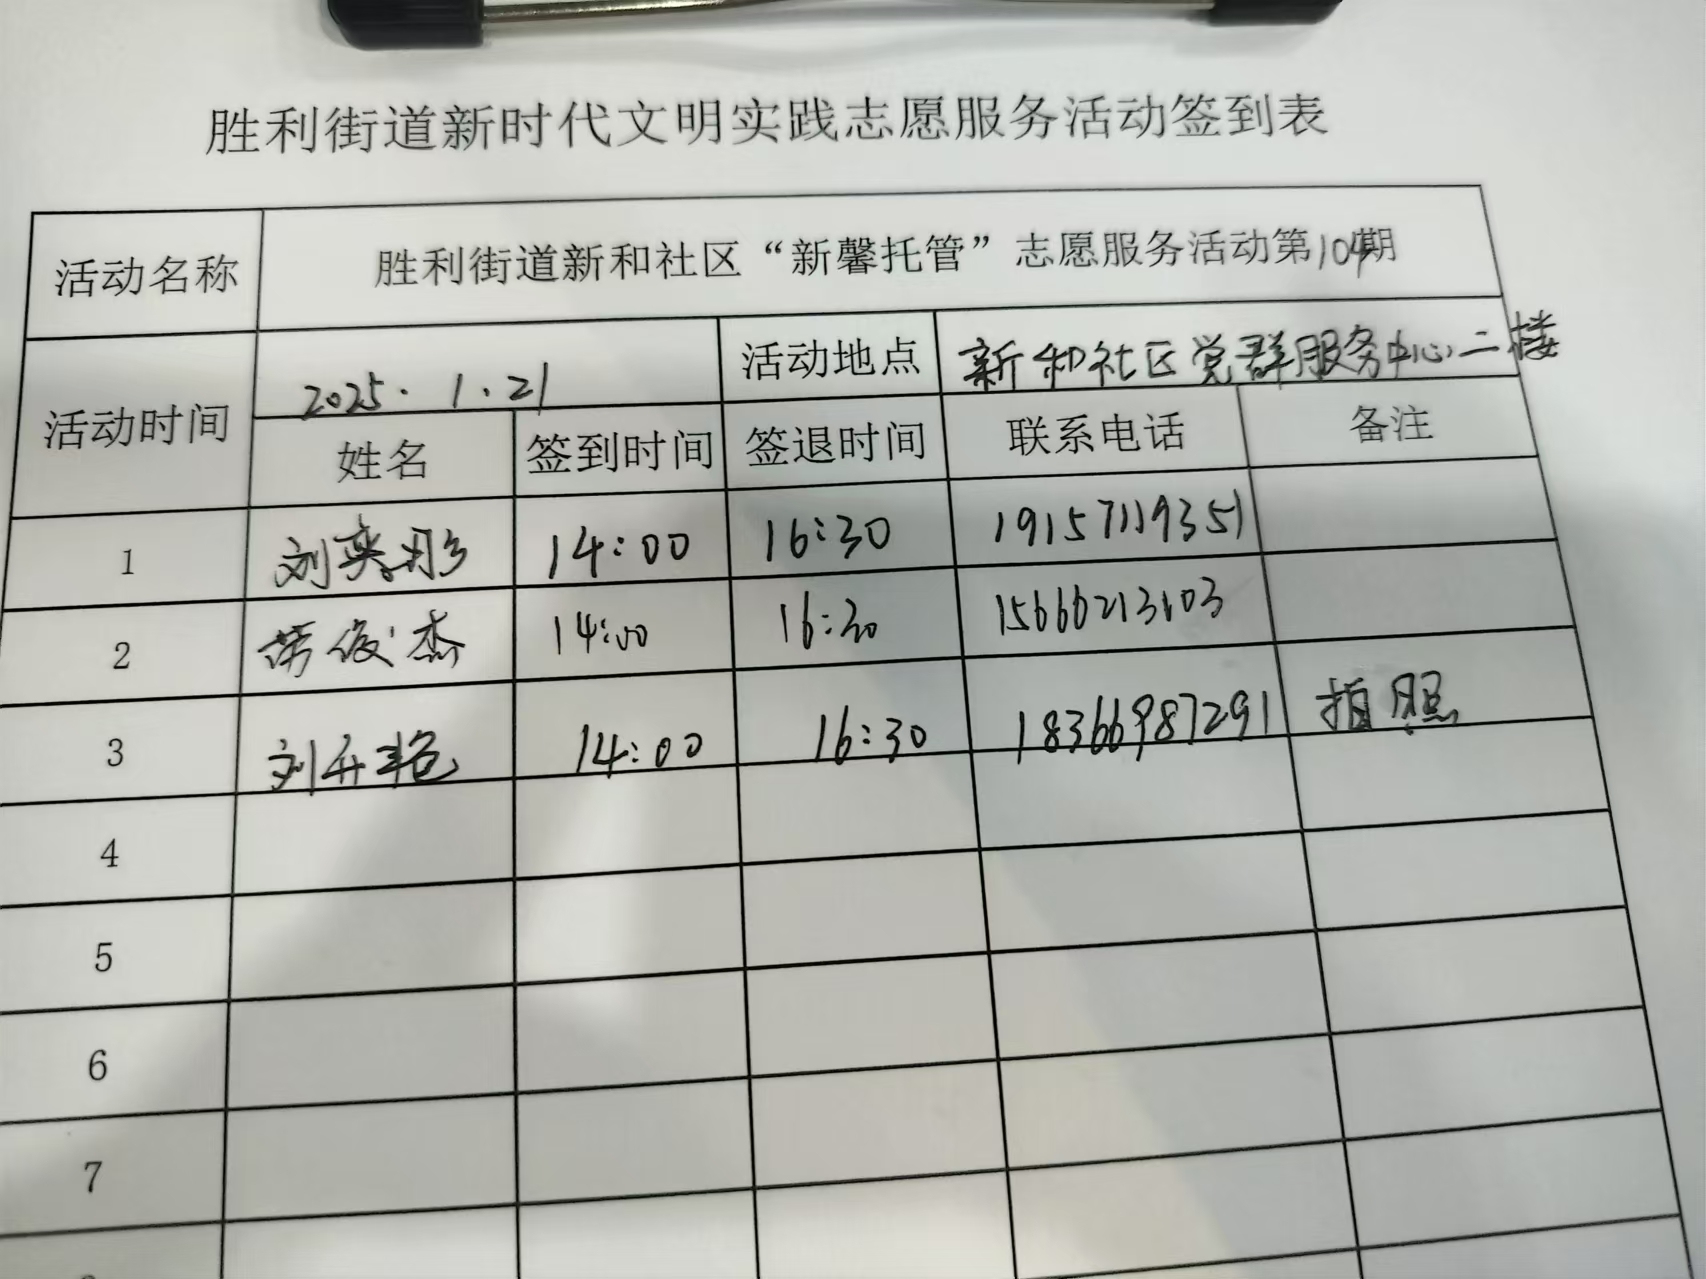 胜利街道新时代文明实践志愿服务活动签到表
活动名称 胜利街道新和社区“新馨托管”志愿服务活动第104期
活动时间 2025.1.21 活动地点 新和社区党群服务中心二楼
姓名 签到时间 签退时间 联系电话 备注
1 刘奕彤 14:00 16:30 19157119351
2 俊杰 14:00 16:30 15666213103
3 刘升艳 14:00 16:30 18366987291 拍照
4
5
6
7